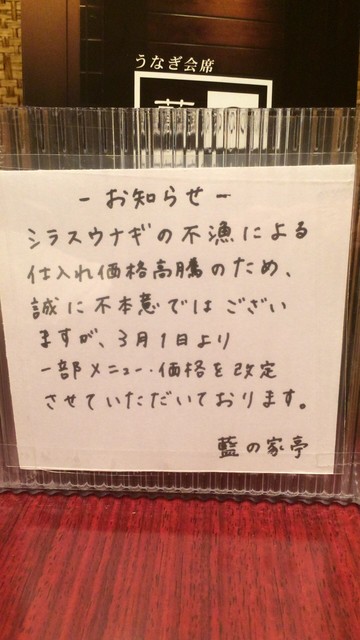 うなぎ会席
－お知らせ－
シラスウナギの不漁による
仕入れ価格高騰のため、
誠に不本意ではござい
ますが、3月1日より
一部メニュー・価格を改定
させていただいております。
藍の家亭